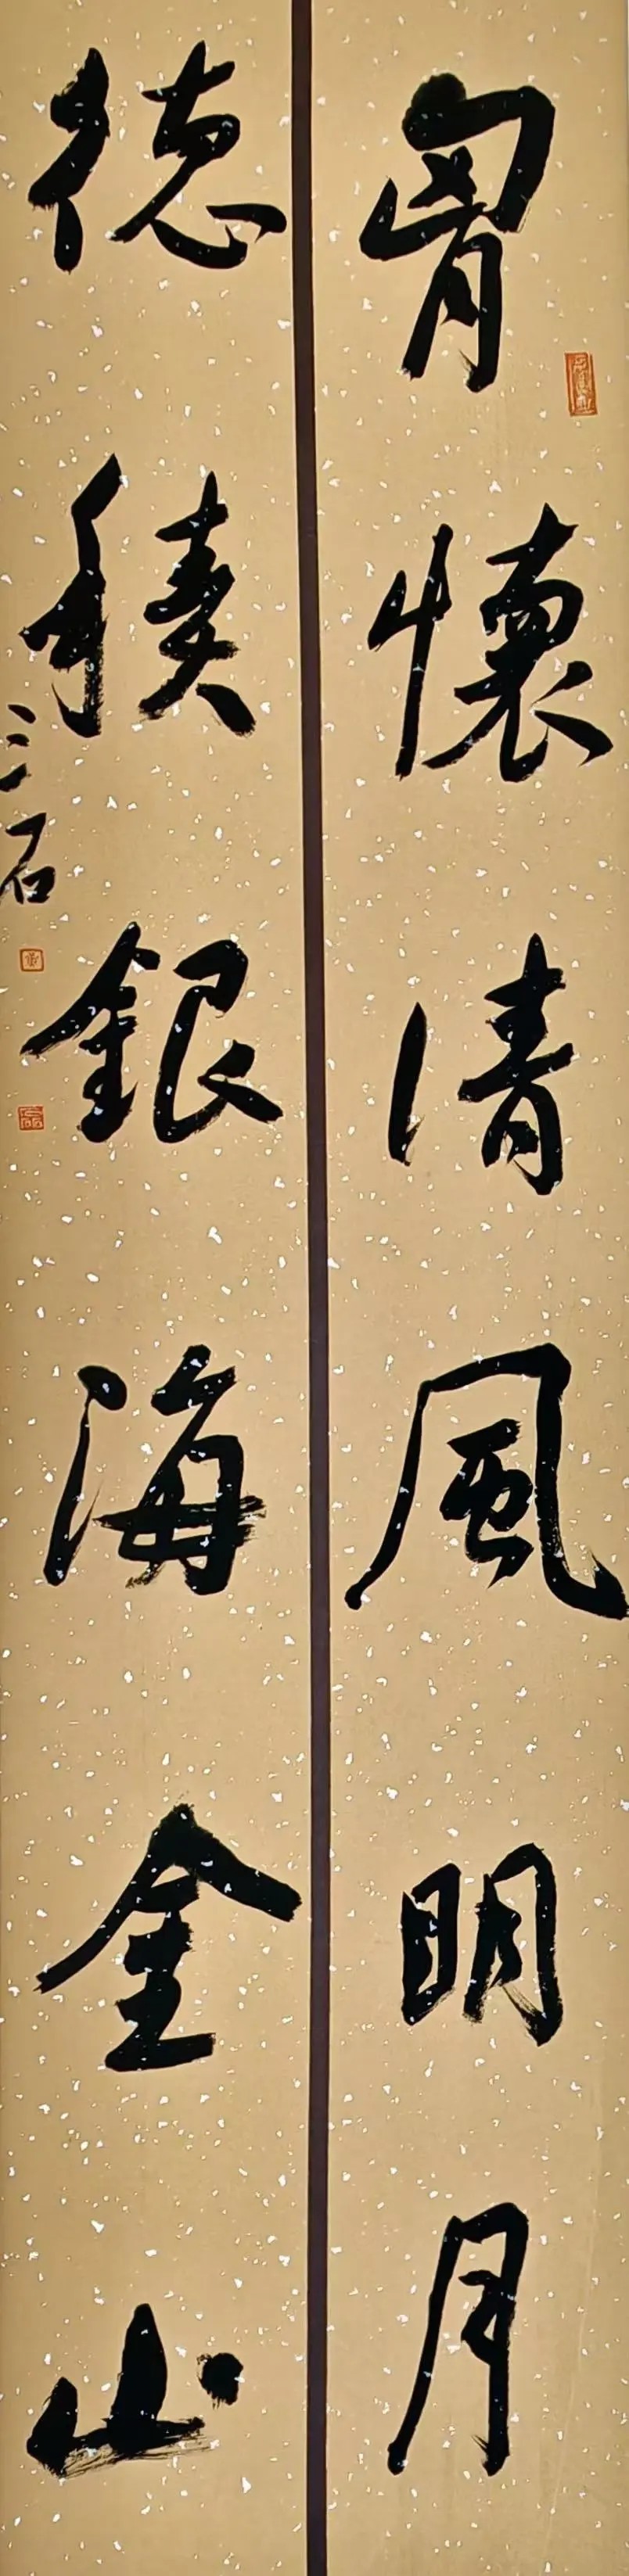 胷懷清風明月
德積銀海金山
三石